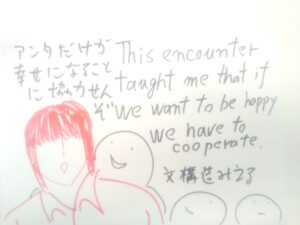 アンタだけが
幸せになること
に協力せん
ぞ
This encounter
taught me that if
we want to be happy
we have to
cooperate.
文構造みえる